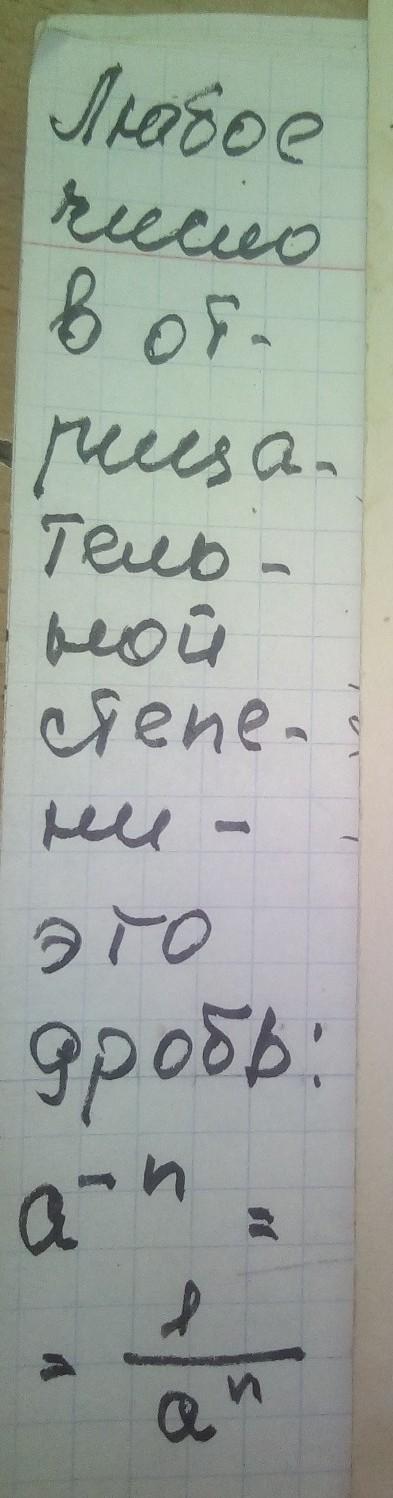 Любое
число
в от-
рица-
тель-
ной
степе-
ни -
это
дробь:
a⁻ⁿ =
= 1/aⁿ